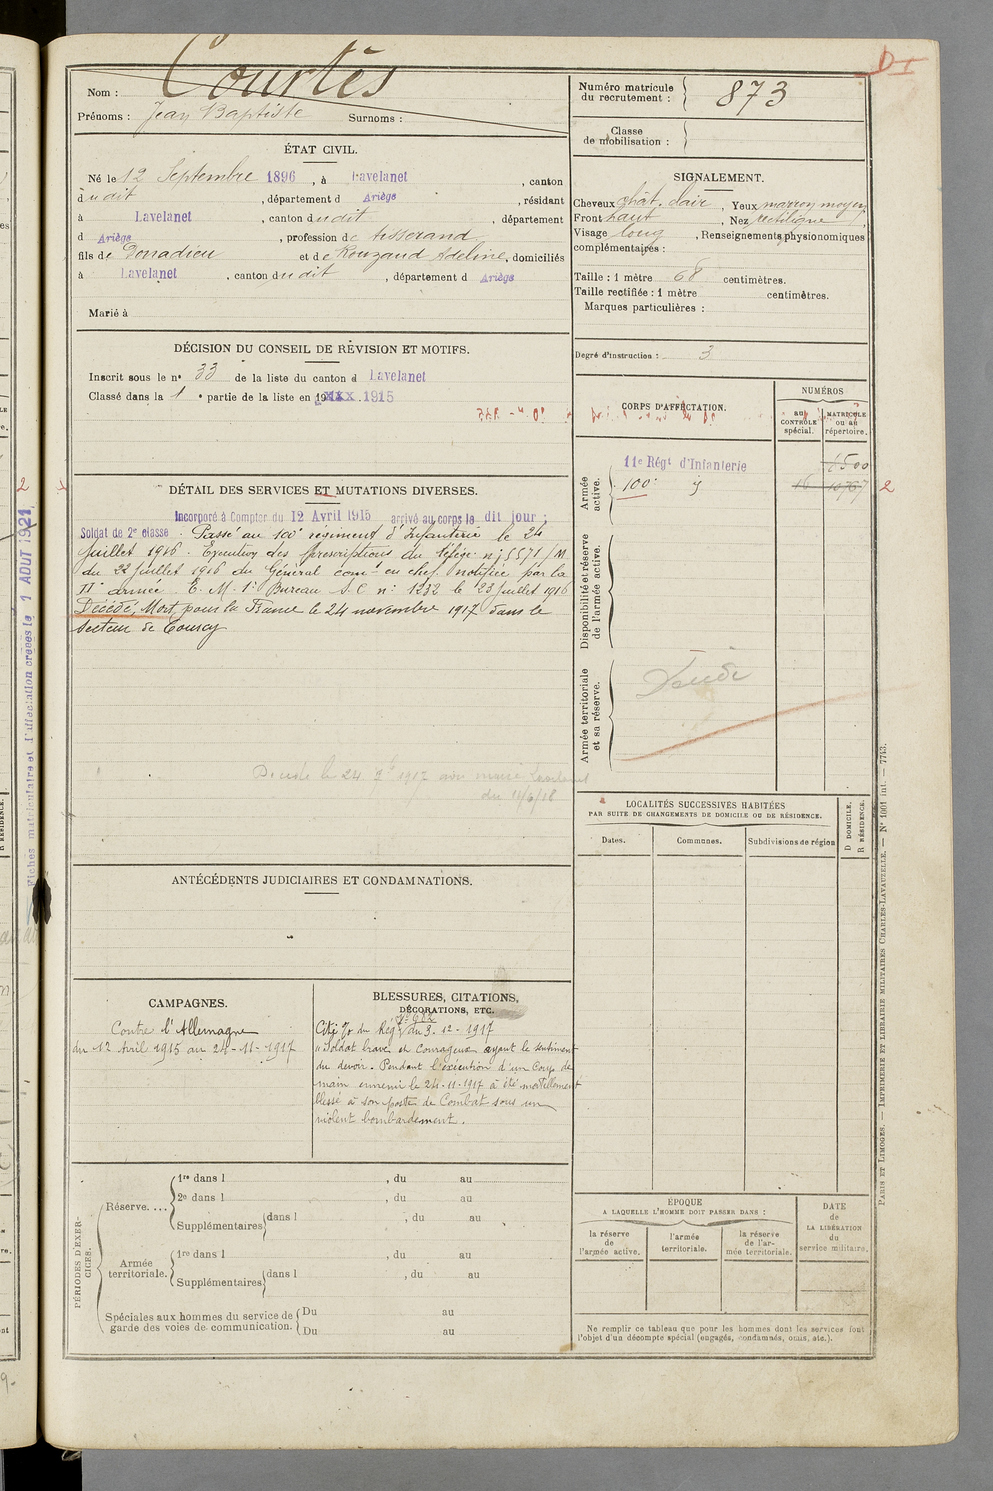 Nom : Courtès
Prénoms : Jean Baptiste Surnoms :
ÉTAT CIVIL.
Né le 12 Septembre 1896, à Lavelanet, canton
dudit, département d Ariège, résidant
à Lavelanet, canton dudit, département
d Ariège, profession de tisserand
fils de Donadieu et de Rouzaud Adeline, domiciliés
à Lavelanet, canton dudit, département d Ariège
Marié à
DÉCISION DU CONSEIL DE RÉVISION ET MOTIFS.
Inscrit sous le n° 33 de la liste du canton d Lavelanet
Classé dans la 1e partie de la liste en 1915
DÉTAIL DES SERVICES ET MUTATIONS DIVERSES.
Incorporé à Compter du 12 Avril 1915 arrivé au corps le dit jour ;
Soldat de 2e classe. Passé au 100e régiment d'Infanterie le 24
juillet 1916. Exécution des prescriptions du télégr. n° 5571/M
du 22 juillet 1916 du Général comt en chef notifiée par la
IIe armée E. M. 1er Bureau S.C. n° 1232 le 23 juillet 1916
Décédé, Mort pour la France le 24 novembre 1917 dans le
secteur de Courcy
Décédé le 24 9bre 1917 avis mairie Lavelanet
du 11/6/18
ANTÉCÉDENTS JUDICIAIRES ET CONDAMNATIONS.
CAMPAGNES.
Contre l'Allemagne
du 12 Avril 1915 au 24-11-1917
BLESSURES, CITATIONS,
DÉCORATIONS, ETC.
Cité O/ du Régt du 3.12-1917
"Soldat brave et Courageux ayant le sentiment
du devoir. Pendant l'exécution d'un Coup de
main ennemi le 24-11-1917 a été mortellement
blessé à son poste de Combat sous un
violent bombardement.
PÉRIODES D'EXERCICES.
Réserve....
1re dans l , du au
2e dans l , du au
Supplémentaires dans l , du au
Armée territoriale.
1re dans l , du au
Supplémentaires dans l , du au
Spéciales aux hommes du service de garde des voies de communication.
Du au
Du au
Numéro matricule du recrutement : 873
Classe de mobilisation :
SIGNALEMENT.
Cheveux chât. clair, Yeux marron moyen
Front haut, Nez rectiligne
Visage long, Renseignements physionomiques
complémentaires :
Taille : 1 mètre 68 centimètres.
Taille rectifiée : 1 mètre centimètres.
Marques particulières :
Degré d'instruction : 3
CORPS D'AFFECTATION.
NUMÉROS
au CONTRÔLE spécial.
MATRICULE ou au répertoire.
Armée active.
11e Régt d'Infanterie 6500
100e 16 10767
2
Disponibilité et réserve de l'armée active.
Armée territoriale et sa réserve.
Décédé
LOCALITÉS SUCCESSIVES HABITÉES
PAR SUITE DE CHANGEMENTS DE DOMICILE OU DE RÉSIDENCE.
Dates. Communes. Subdivisions de région
D DOMICILE.
R RÉSIDENCE.
ÉPOQUE
A LAQUELLE L'HOMME DOIT PASSER DANS :
la réserve de l'armée active.
l'armée territoriale.
la réserve de l'armée territoriale.
DATE de LA LIBÉRATION du service militaire.
Ne remplir ce tableau que pour les hommes dont les services font
l'objet d'un décompte spécial (engagés, condamnés, omis, etc.).
PARIS ET LIMOGES. — IMPRIMERIE ET LIBRAIRIE MILITAIRES CHARLES-LAVAUZELLE. — N° 1001 int. — 7743.
Fiches matriculaire et d'affectation créées le 1 AOUT 1921